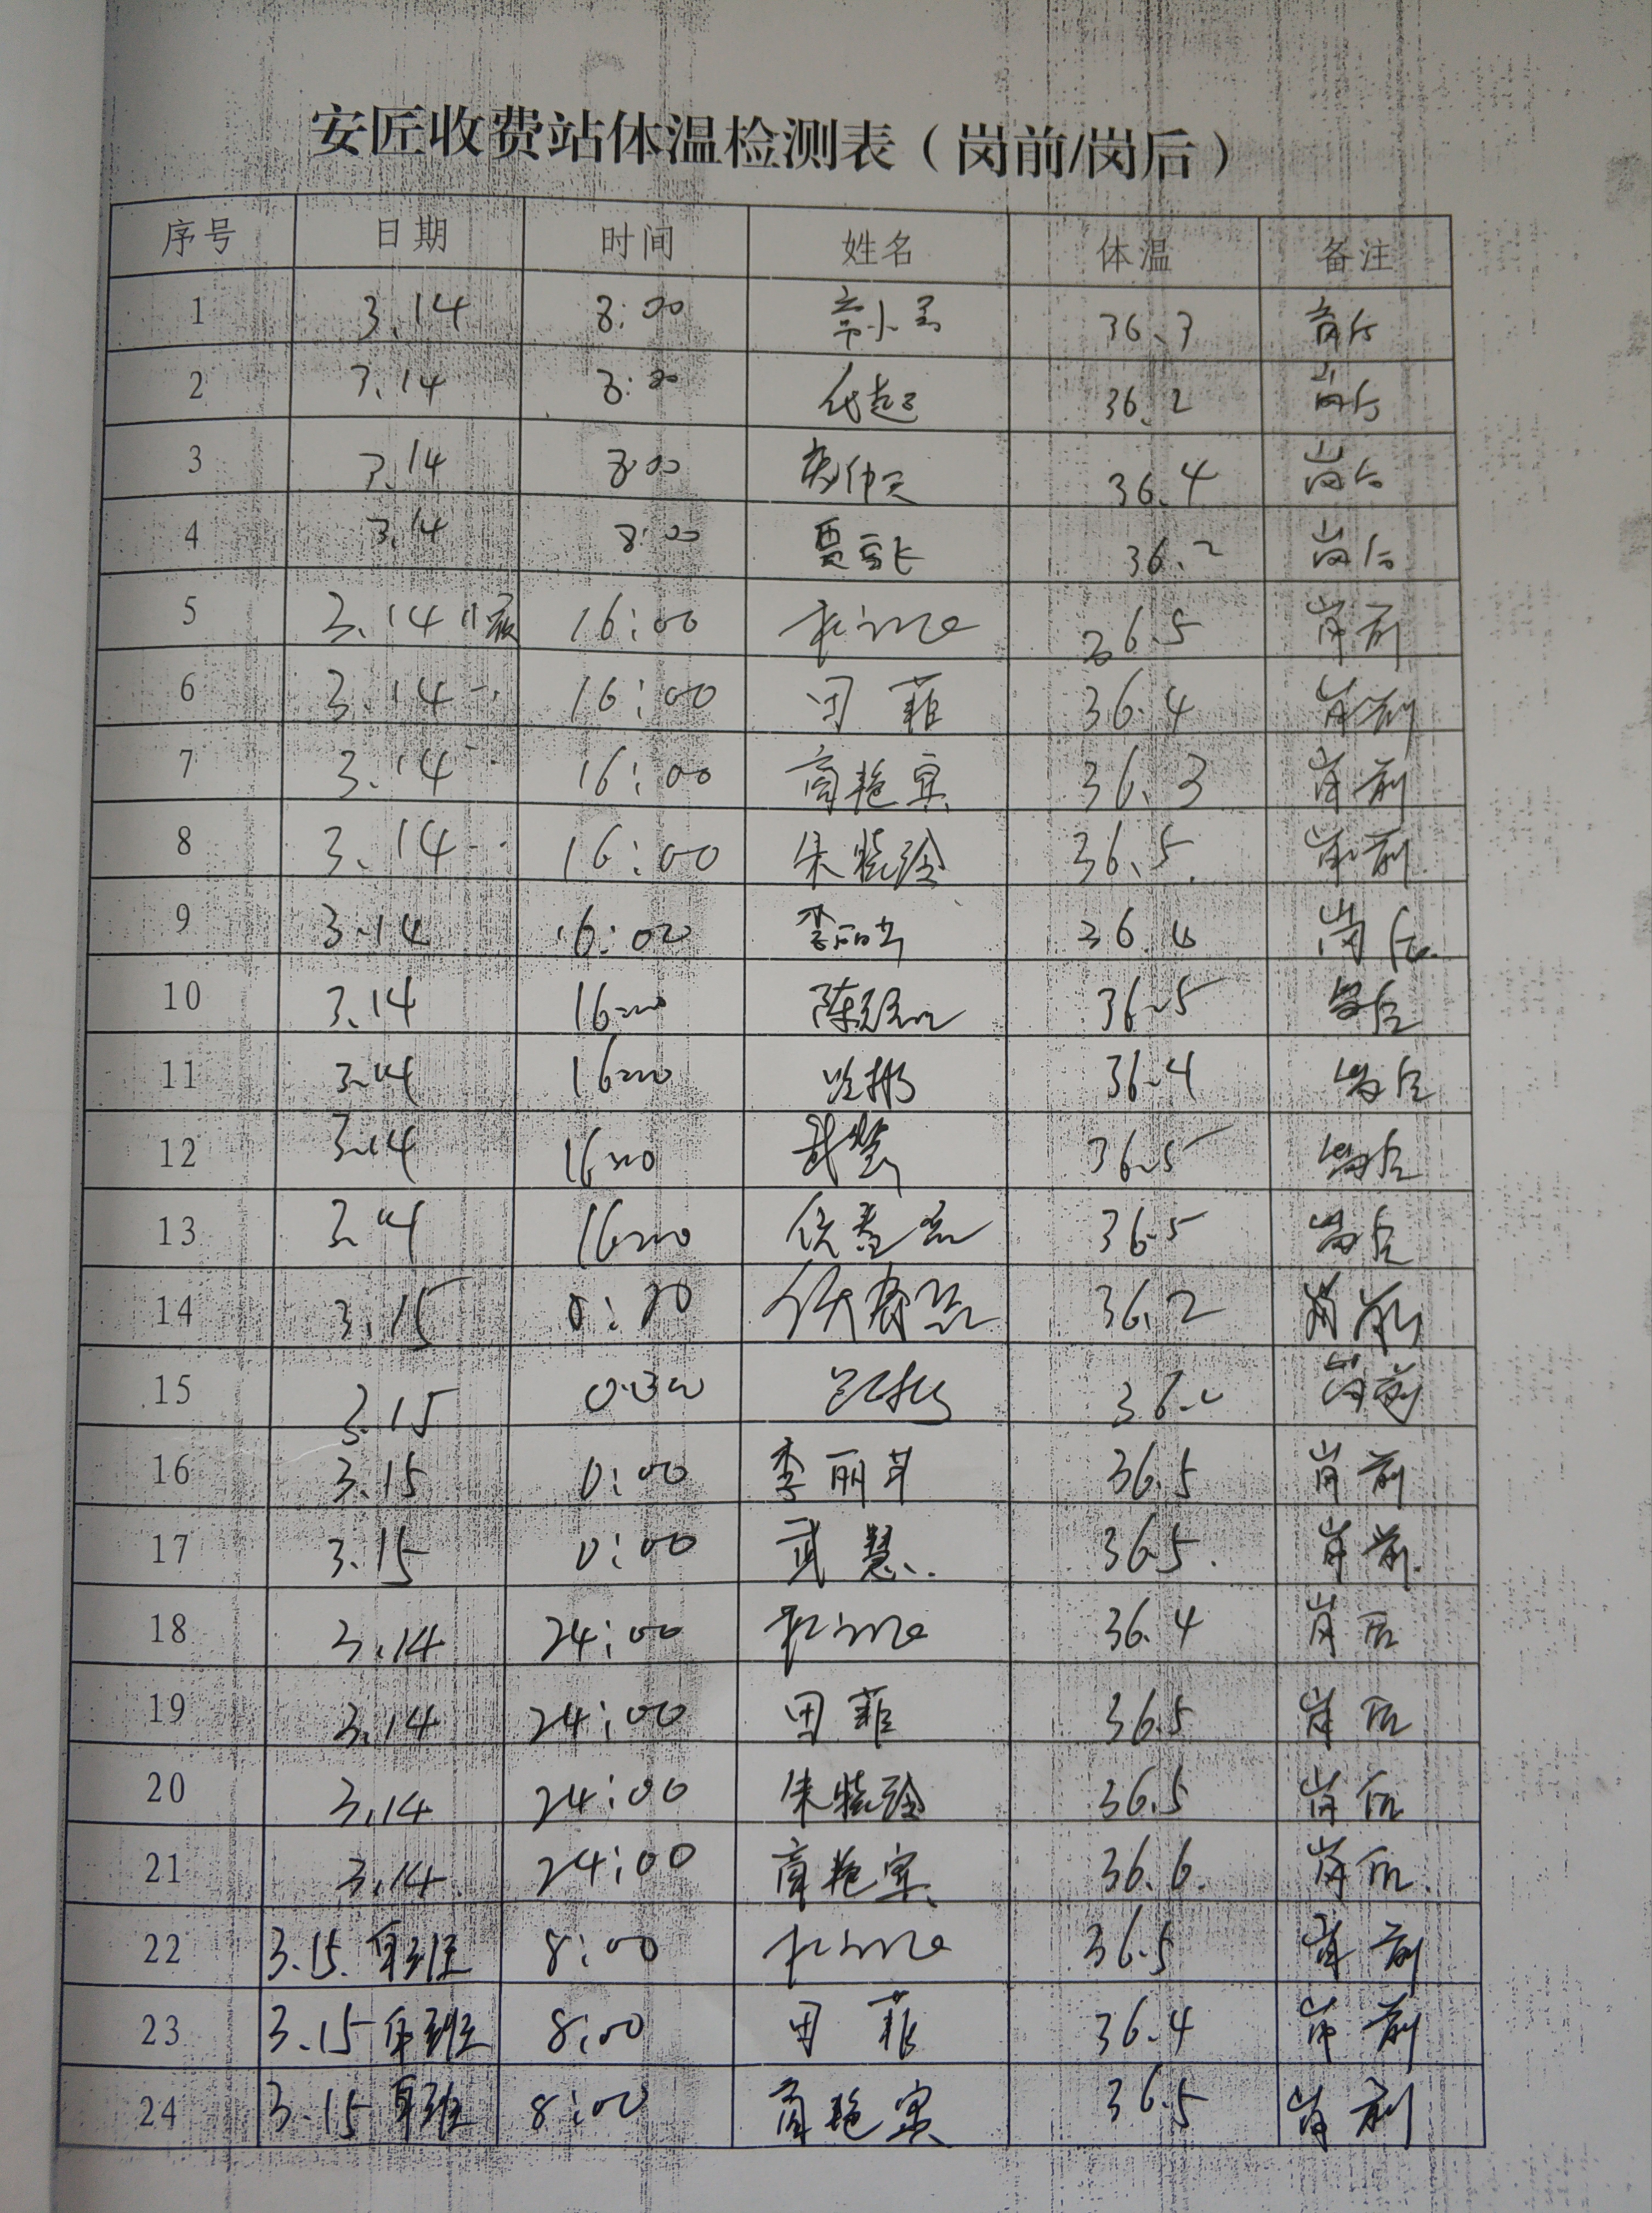 安匠收费站体温检测表（岗前/岗后）
序号 日期 时间 姓名 体温 备注
1 3.14 8:00 36.3 岗后
2 3.14 8:00 36.2 岗后
3 3.14 8:00 36.4 岗后
4 3.14 8:00 36.2 岗后
5 3.14 16:00 36.5 岗前
6 3.14 16:00 田菲 36.4 岗前
7 3.14 16:00 高艳宾 36.3 岗前
8 3.14 16:00 朱晓玲 36.5 岗前
9 3.14 16:00 李丽芳 36.4 岗后
10 3.14 16:00 36.5 岗后
11 3.14 16:00 36.4 岗后
12 3.14 16:00 武慧 36.5 岗后
13 3.14 16:00 36.5 岗后
14 3.15 0:00 36.2 岗前
15 3.15 岗前
16 3.15 0:00 李丽芳 36.5 岗前
17 3.15 0:00 武慧 36.5 岗前
18 3.14 24:00 36.4 岗后
19 3.14 24:00 田菲 36.5 岗后
20 3.14 24:00 朱晓玲 36.5 岗后
21 3.14 24:00 高艳宾 36.6 岗后
22 3.15 早班 8:00 36.5 岗前
23 3.15 早班 8:00 田菲 36.4 岗前
24 3.15 早班 8:00 高艳宾 36.5 岗前